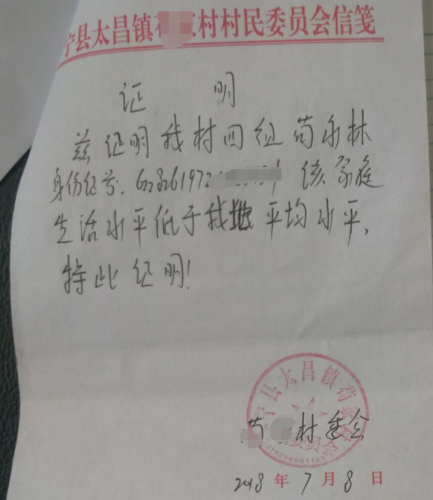 宁县太昌镇 村村民委员会信笺
证 明
兹证明我村四组苟永林
身份证号:628261972 该家庭
生活水平低于我地平均水平,
特此证明!
宁县太昌镇
村委会
2018年7月8日